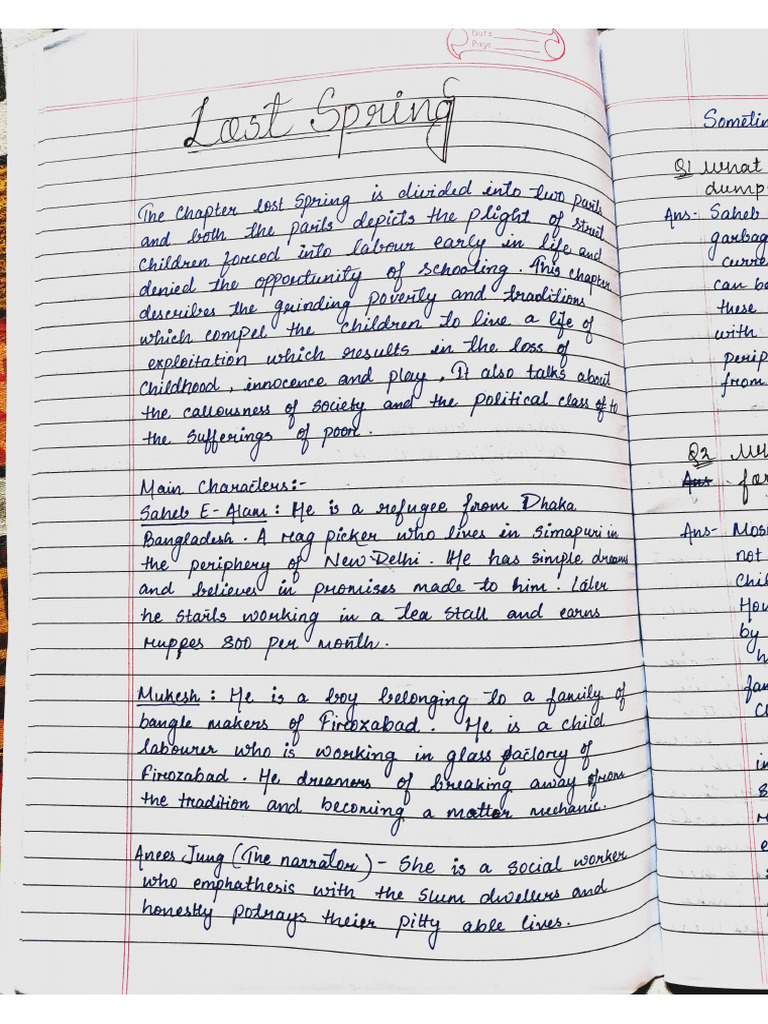 Date
Page
Lost Spring
The Chapter lost Spring is divided into two parts
and both the parts depicts the plight of street
children forced into labour early in life and
denied the opportunity of schooling. This chapter
describes the grinding poverty and traditions
which compel the children to live a life of
exploitation which results in the loss of
childhood, innocence and play. It also talks about
the callousness of society and the political class of to
the sufferings of poor.
Main Characters:-
Saheb E-Alam: He is a refugee from Dhaka
Bangladesh. A rag picker who lives in Simapuri in
the periphery of New Delhi. He has simple dreams
and believes in promises made to him. Later
he starts working in a tea stall and earns
ruppes 800 per month.
Mukesh: He is a boy belonging to a family of
bangle makers of Firozabad. He is a child
labourer who is working in glass factory of
Firozabad. He dreamers of breaking away from
the tradition and becoming a motor mechanic.
Anees Jung (The narrator) - She is a social worker
who emphathesis with the slum dwellers and
honestly potrays their pitty able lives.
Sometim
Q1 What
dump
Ans- Saheb
garbag
curre
can be
these
with
perip
from
Q2
Ans for
Ans- Mos
not
Chil
Hou
by
h
fam
Ch
in